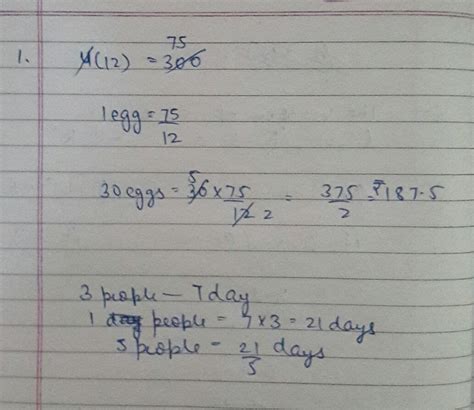 75
1. 4(12) = 300
1 egg = 75/12
5
30 eggs = 30 × 75/12 2 = 375/2 = ₹187.5
3 people — 7 day
1 people = 7×3 = 21 days
5 people = 21/5 days